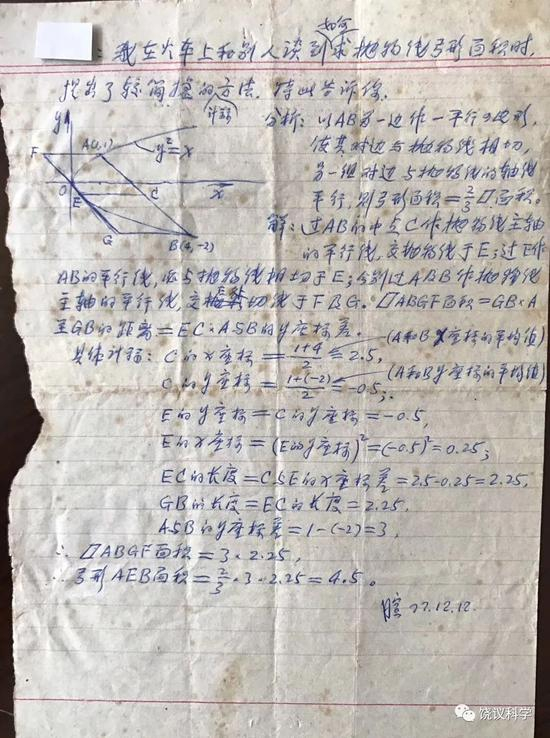 我在火车上和别人谈到如何求抛物线弓形面积时,
提出了较简捷的计算方法. 特此告诉你.
y
A(1,1)
F
y²=x
O
E
C
x
G
B(4,-2)
分析: 以AB为一边作一平行四边形,
使其对边与抛物线相切,
另一组对边与抛物线的轴线
平行, 则弓形面积=2/3▱面积。
解: 过AB的中点C作抛物线主轴
的平行线, 交抛物线于E; 过E作
AB的平行线, 必与抛物线相切于E; 分别过A及B作抛物线
主轴的平行线, 交过E的切线于F及G. ▱ABGF面积=GB×A
至GB的距离=EC×A与B的y座标差.
具体计算: C的x座标=(1+4)/2=2.5, (A和B x座标的平均值)
C的y座标=(1+(-2))/2=-0.5, (A和B y座标的平均值)
E的y座标=C的y座标=-0.5,
E的x座标=(E的y座标)²=(-0.5)²=0.25;
EC的长度=C与E的x座标差=2.5-0.25=2.25,
GB的长度=EC的长度=2.25,
A与B的y座标差=1-(-2)=3,
∴ ▱ABGF面积=3×2.25,
∴ 弓形AEB面积=2/3×3×2.25=4.5。
77.12.12.
饶议科学